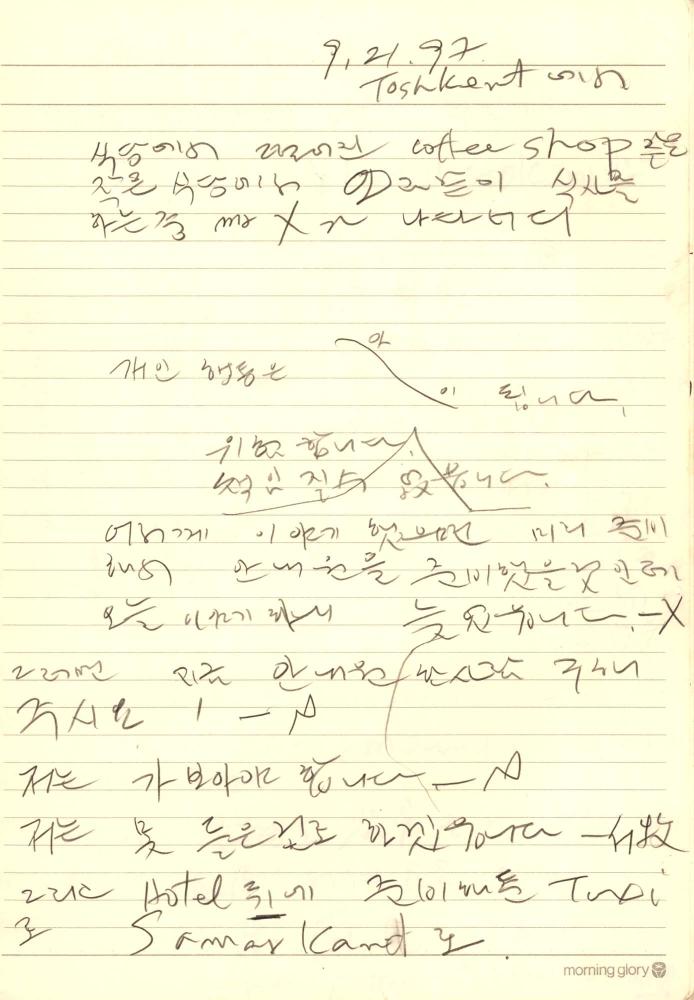 9. 21. 97
Toshkent 에서
식당에서 coffee shop 같은
작은 식당에서 식사를
하는 중 X가 나타나
아
개인 행동은 이 됩니다.
위험 합니다.
책임 질 수 없습니다.
어제 이야기 했으면 미리 준비
해서 안내원을 준비했을 것인데
오늘 이야기 하니 늦었습니다. - X
그러면 지금 안내원 한사람 구하
주시요 ! - N
저는 가 보아야 합니다 - N
저는 못 들은 걸로 하겠습니다 - 서牧
그리고 Hotel 뒤에 준비해둔 Taxi
로 Samar Kand 로.
morning glory